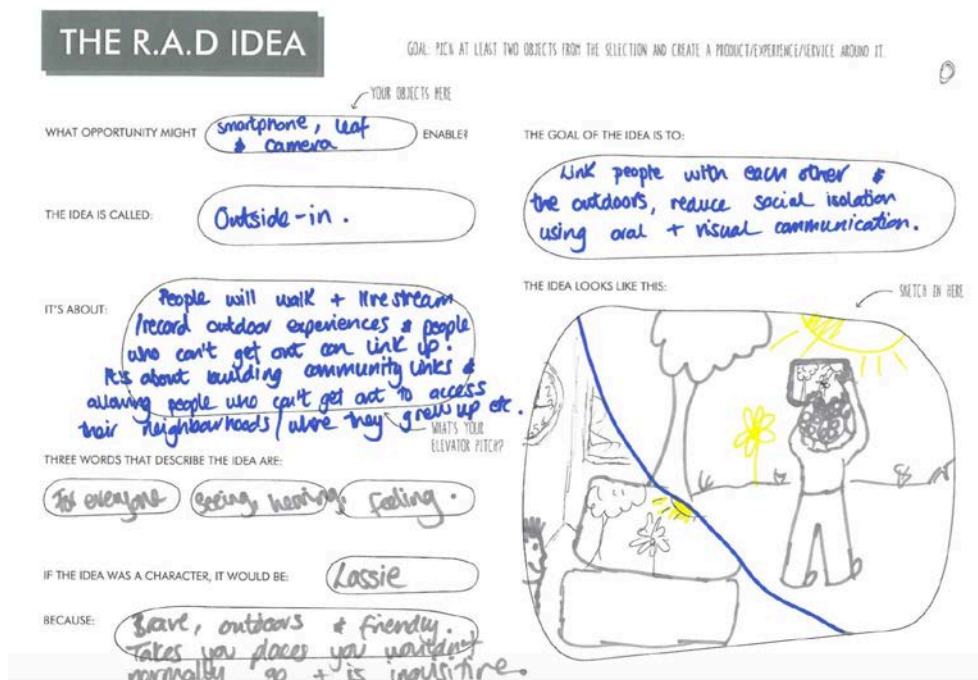 THE R.A.D IDEA
GOAL: PICK AT LEAST TWO OBJECTS FROM THE SELECTION AND CREATE A PRODUCT/EXPERIENCE/SERVICE AROUND IT.
YOUR OBJECTS HERE
WHAT OPPORTUNITY MIGHT
smartphone, leaf
& camera
ENABLE?
THE IDEA IS CALLED:
Outside-in.
IT'S ABOUT:
People will walk + livestream
/record outdoor experiences & people
who can't get out can link up.
It's about building community links &
allowing people who can't get out to access
their neighbourhoods / where they grew up etc.
WHAT'S YOUR
ELEVATOR PITCH?
THREE WORDS THAT DESCRIBE THE IDEA ARE:
For everyone
seeing, hearing,
feeling.
IF THE IDEA WAS A CHARACTER, IT WOULD BE:
Lassie
BECAUSE:
Brave, outdoors & friendly.
Takes you places you wouldn't
normally go + is inquisitive.
THE GOAL OF THE IDEA IS TO:
Link people with each other &
the outdoors, reduce social isolation
using oral + visual communication.
THE IDEA LOOKS LIKE THIS:
SKETCH IN HERE